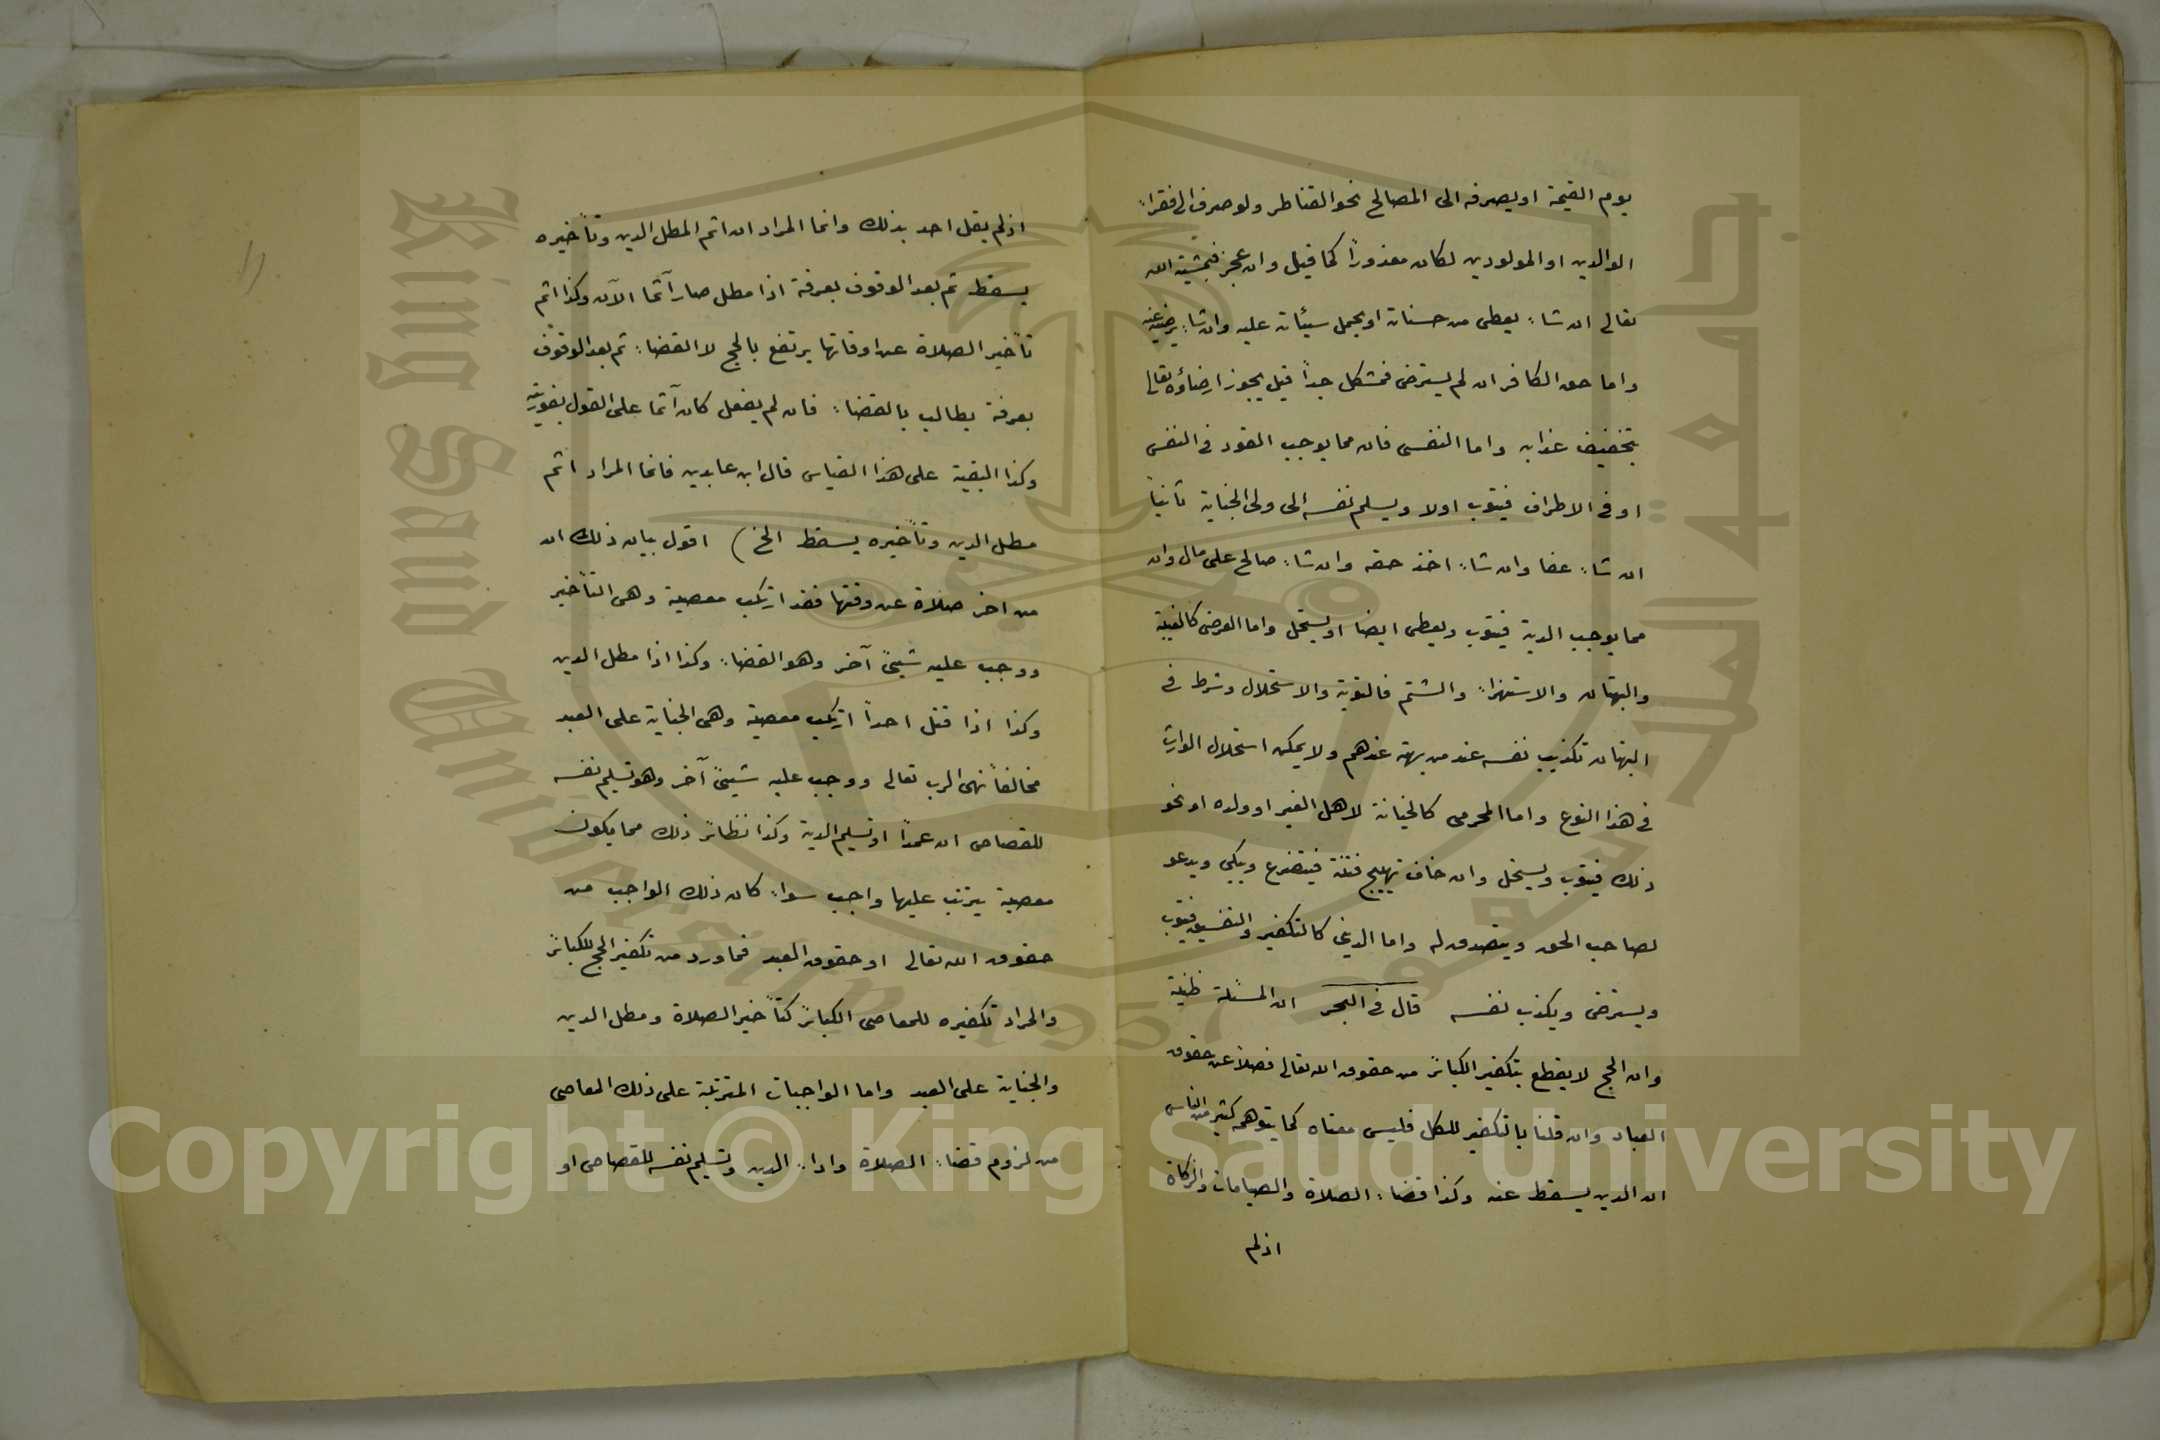 يوم القيمة او يصرفه الى المصالح نحو القناطر ولو صرف الى فقراء
الوالدين او المولودين لكان معذوراً كما قيل وان عجز فبمشية الله
تعالى ان شاء يعطى من حسناته او يحمل سيئاته عليه وان شاء يرضيه عنه
واما حق الكافر ان لم يسترض فمشكل جداً قيل يجوز ارضاؤه تعالى
بتخفيف عذابه واما النفسى فان مما يوجب القود فى النفس
او فى الاطراف فيتوب اولا ويسلم نفسه الى ولى الجناية ثانياً
ان شاء عفا وان شاء اخذ حقه وان شاء صالح على مال وان
مما يوجب الدية فيتوب ويعطى ايضا او يستحل واما العرضى كالغيبة
والبهتان والاستهزاء والشتم فالتوبة والاستحلال وشرط فى
البهتان تكذيب نفسه عند من بهته عندهم ولا يمكن استحلال الوارث
فى هذا النوع واما المحرمى كالخيانة لاهل الغير او ولده او نحو
ذلك فيتوب ويستحل وان خاف تهييج فتنة فيتضرع ويبكى ويدعو
لصاحب الحق ويتصدق له واما الدينى كالتكفير والتفسيق فيتوب
ويسترضى ويكذب نفسه قال فى البحر ان المسئلة ظنية
وان الحج لا يقطع بتكفير الكبائر من حقوق الله تعالى فضلاً عن حقوق
العباد وان قلنا بالتكفير للكل فليس معناه كما يتوهمه كثير من الناس
ان الدين يسقط عنه وكذا قضاء الصلاة والصيامات والزكاة
اذ لم
اذ لم يقل احد بذلك وانما المراد ان اثم المطل الدين وتأخيره
يسقط ثم بعد الوقوف بعرفة اذا مطل صار آثما الآن وكذا اثم
تأخير الصلاة عن اوقاتها يرتفع بالحج لا القضاء ثم بعد الوقوف
بعرفة يطالب بالقضاء فان لم يفعل كان آثما على القول بفوريته
وكذا البقية على هذا القياس قال ابن عابدين فانما المراد اثم
مطل الدين وتأخيره يسقط الخ) اقول بيان ذلك ان
من اخر صلاة عن وقتها فقد ارتكب معصية وهى التأخير
ووجب عليه شيئ آخر وهو القضاء وكذا اذا مطل الدين
وكذا اذا قتل احداً ارتكب معصية وهى الجناية على العبد
مخالفاً نهى الرب تعالى ووجب عليه شيئ آخر وهو تسليم نفسه
للقصاص ان عمداً او تسليم الدية وكذا نظائر ذلك مما يكون
معصية يترتب عليها واجب سواء كان ذلك الواجب من
حقوق الله تعالى او حقوق العبد فما ورد من تكفير الحج للكبائر
والمراد تكفيره للمعاصى الكبائر كتأخير الصلاة ومطل الدين
والجناية على العبد واما الواجبات المترتبة على ذلك المعاصى
من لزوم قضاء الصلاة واداء الدين وتسليم نفسه للقصاص او
١١
جامعة الملك سعود
King Saud University
1957
Copyright © King Saud University